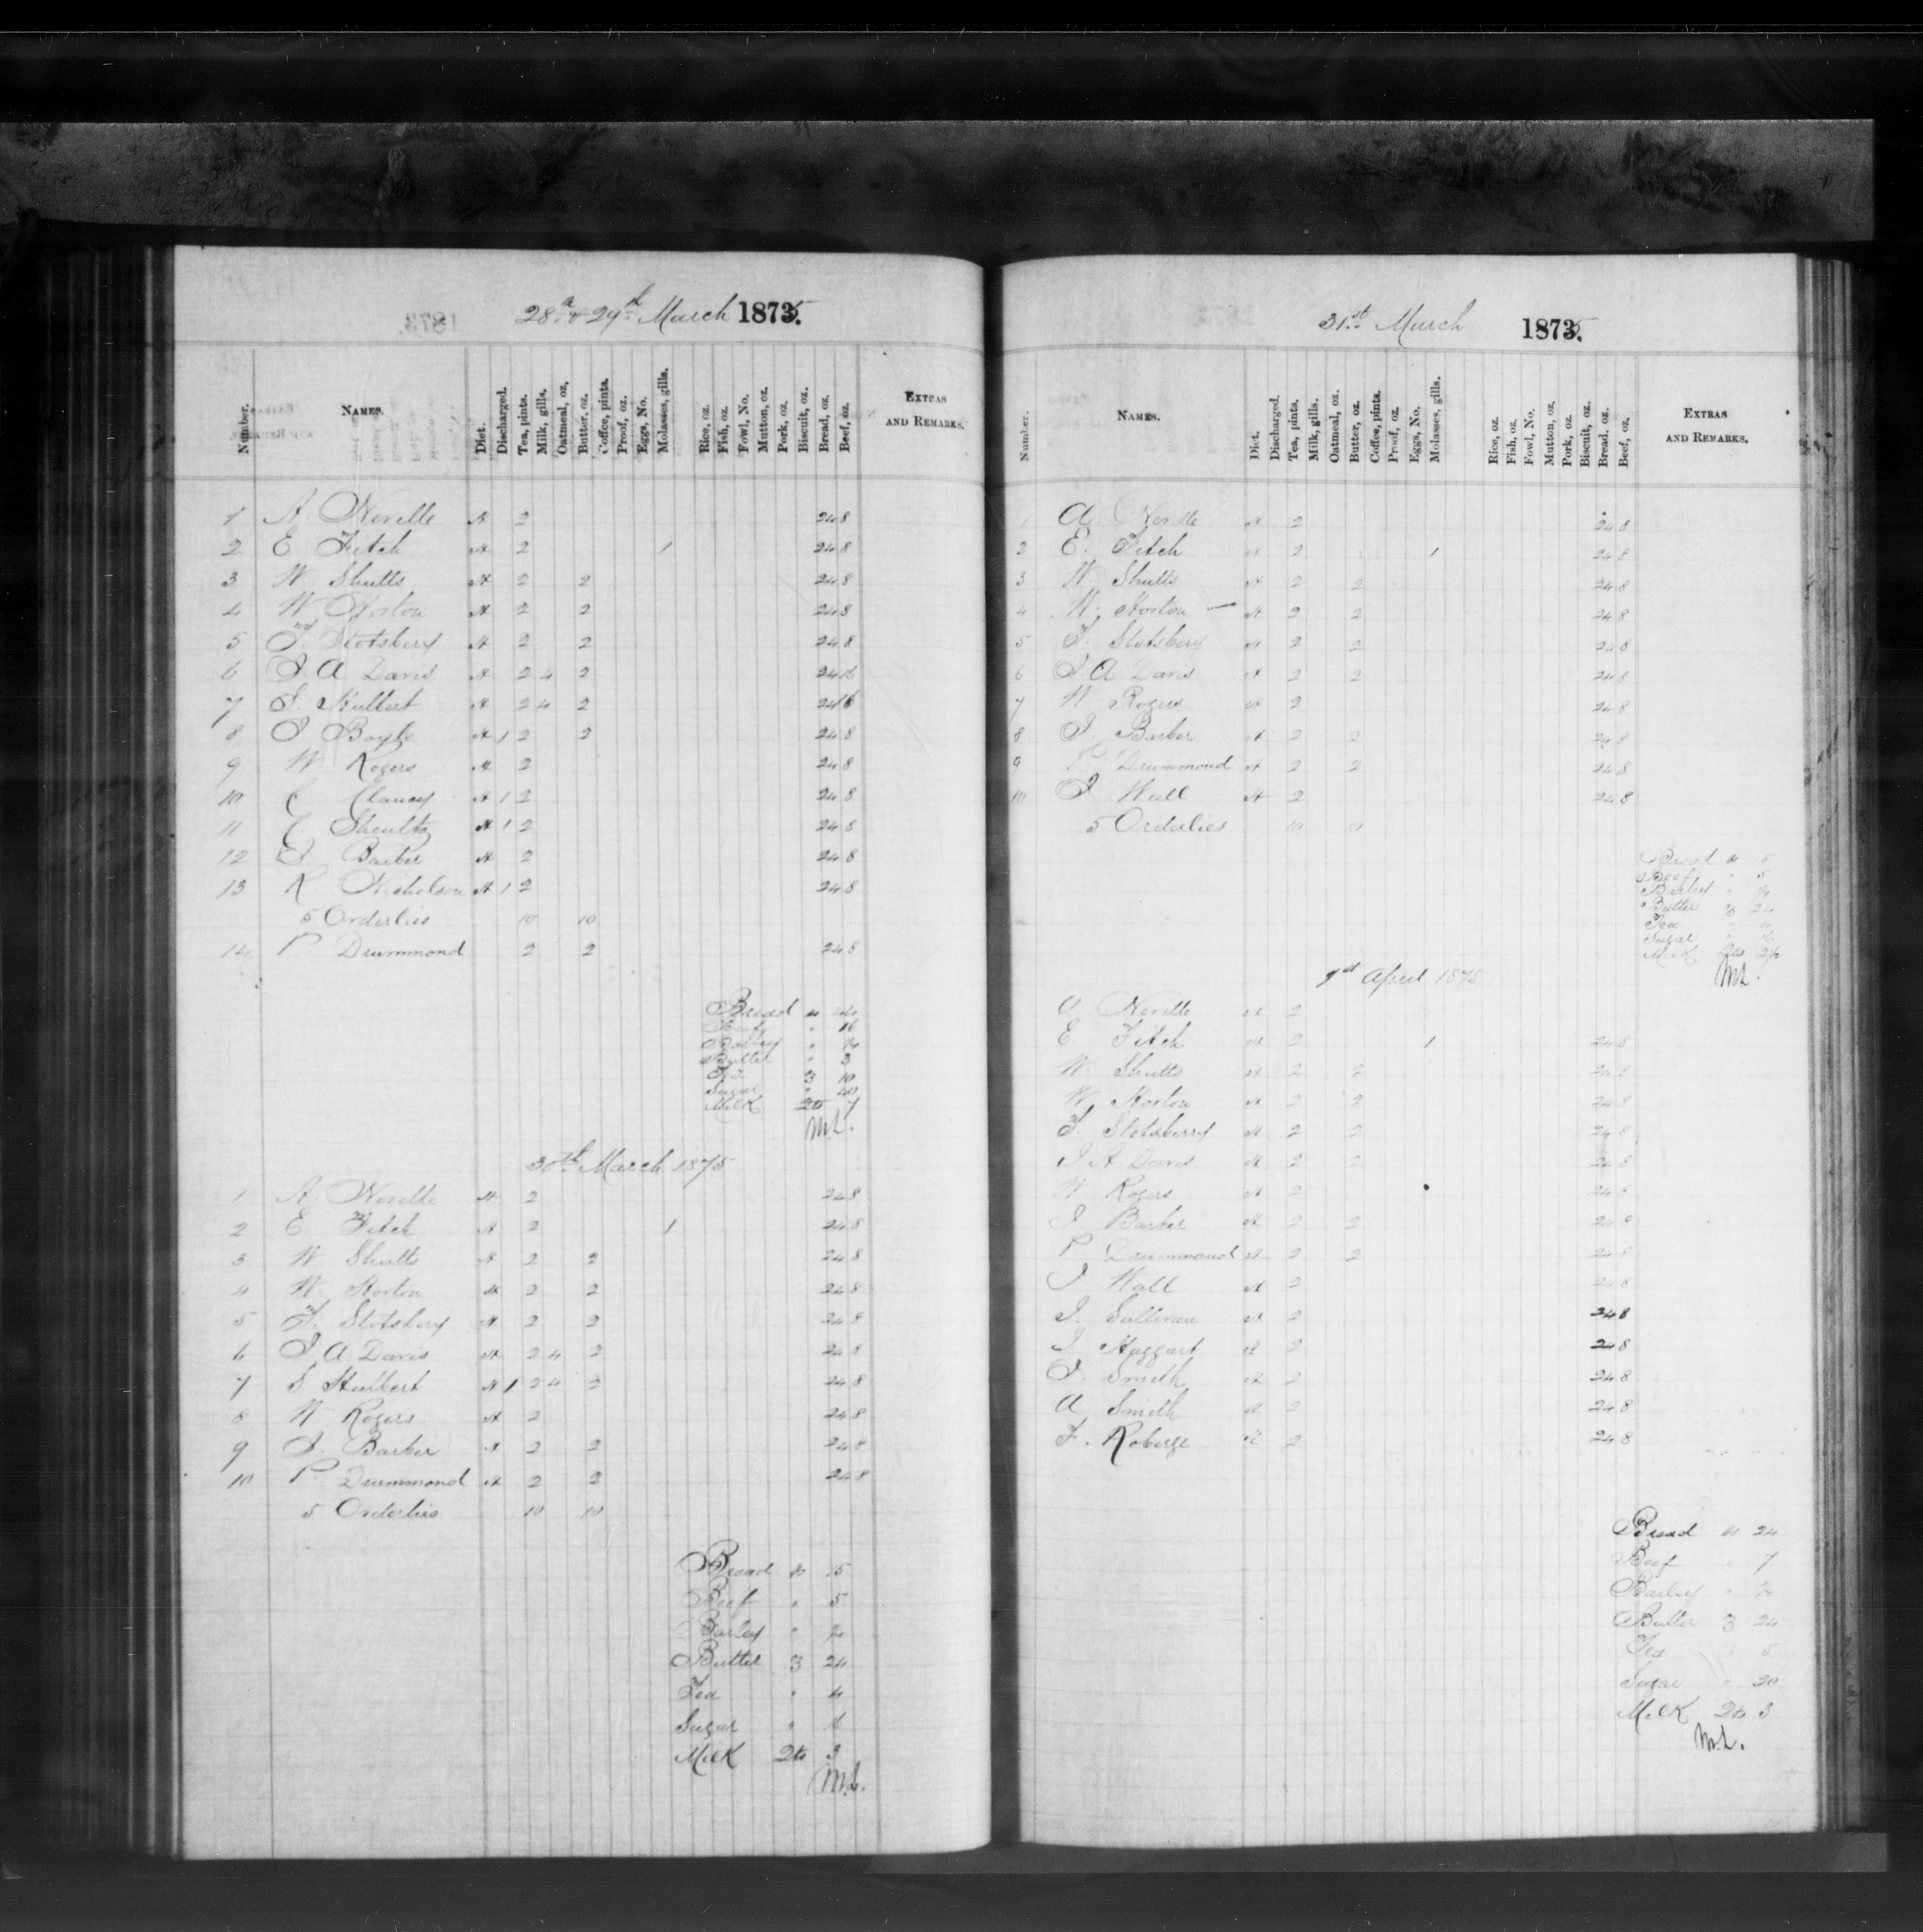 28th & 29th March 1875.
Number. NAMES. Diet. Discharged. Tea, pints. Milk, gills. Oatmeal, oz. Butter, oz. Coffee, pints. Proof, oz. Eggs, No. Molasses, gills. Rice, oz. Fish, oz. Fowl, No. Mutton, oz. Pork, oz. Biscuit, oz. Bread, oz. Beef, oz. EXTRAS AND REMARKS.
1 A. Neville 2 24 8
2 E Fitch 2 1 24 8
3 W Shutts 2 2 24 8
4 W Horton 2 2 24 8
5 F. Stotsbery 2 2 24 8
6 J. A Davis 2 4 2 24 16
7 S. Hulbert 2 4 2 24 16
8 J Boyle 1 2 2 24 8
9 W Rogers 2 24 8
10 C Clancy 1 2 24 8
11 Shoultz 1 2 24 8
12 J Barber 2 24 8
13 R. Nicholson 1 2 24 8
5 Orderlies 10 10
14 P Drummond 2 2 24 8
Bread
Beef " 16
Barley "
Butter " 3
Tea 3 10
Sugar " 40
Milk 7
30th March 1875
1 A. Neville 2 24 8
2 E Fitch 2 1 24 8
3 W Shutts 2 2 24 8
4 W. Horton 2 2 24 8
5 F. Stotsbery 2 2 24 8
6 J A Davis 2 4 2 24 8
7 S Hulbert 1 2 4 2 24 8
8 W. Rogers 2 24 8
9 J. Barber 2 2 24 8
10 P. Drummond 2 2 24 8
5 Orderlies 10 10
Bread 15
Beef " 5
Barley "
Butter 3 24
Tea " 4
Sugar "
Milk 3
31st March 1875.
Number. NAMES. Diet. Discharged. Tea, pints. Milk, gills. Oatmeal, oz. Butter, oz. Coffee, pints. Proof, oz. Eggs, No. Molasses, gills. Rice, oz. Fish, oz. Fowl, No. Mutton, oz. Pork, oz. Biscuit, oz. Bread, oz. Beef, oz. EXTRAS AND REMARKS.
1 A. Neville 2 24 8
2 E. Fitch 2 1 24 8
3 W Shutts 2 2 24 8
4 W. Horton 2 2 24 8
5 F. Stotsbery 2 2 24 8
6 J A Davis 2 2 24 8
7 W Rogers 2 24 8
8 J. Barber 2 2 24 8
9 P. Drummond 2 2 24 8
10 J Wall 2 24 8
5 Orderlies 10 10
Bread
Beef " 5
Barley "
Butter 3 24
Tea 4
Sugar
Milk
1st April 1875
A Neville 2
E. Fitch 2 1 24 8
W. Shutts 2 2 24 8
W. Horton 2 2 24 8
F. Stotsberry 2 2 24 8
J A Davis 2 2 24 8
W Rogers 2 24 8
J. Barber 2 2 24 8
P. Drummond 2 2 24 8
J Wall 2 24 8
J. Sullivan 2 24 8
J. Haggart 2 24 8
J. Smith 2 24 8
A Smith 2 24 8
F. Roberge 2 24 8
Bread 24
Beef 7
Barley "
Butter 3 24
Tea 5
Sugar " 20
Milk 3